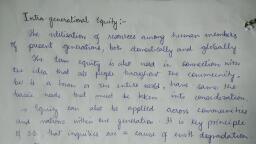 Intra generational Equity :-
The utilisation of resources among human members
of present generations, both domestically and globally
The term equity is also used in connection with
the idea that all people throughout the community,
be it a town or the entire world, have same the
basic needs that must be taken into consideration
→ Equity can also be applied across communities
and nations within one generation. It is key principle
of SD that inquities are a cause of envth degradation